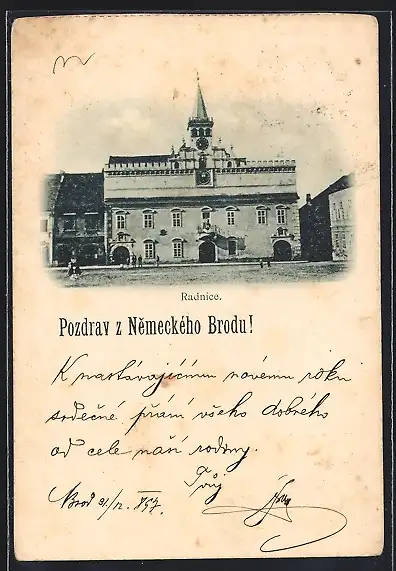 Radnice.
Pozdrav z Německého Brodu!
K nastávajícímu novému roku
srdečné přání všeho dobrého
od celé naší rodiny.
Tvůj
Brod 31/12. 897.